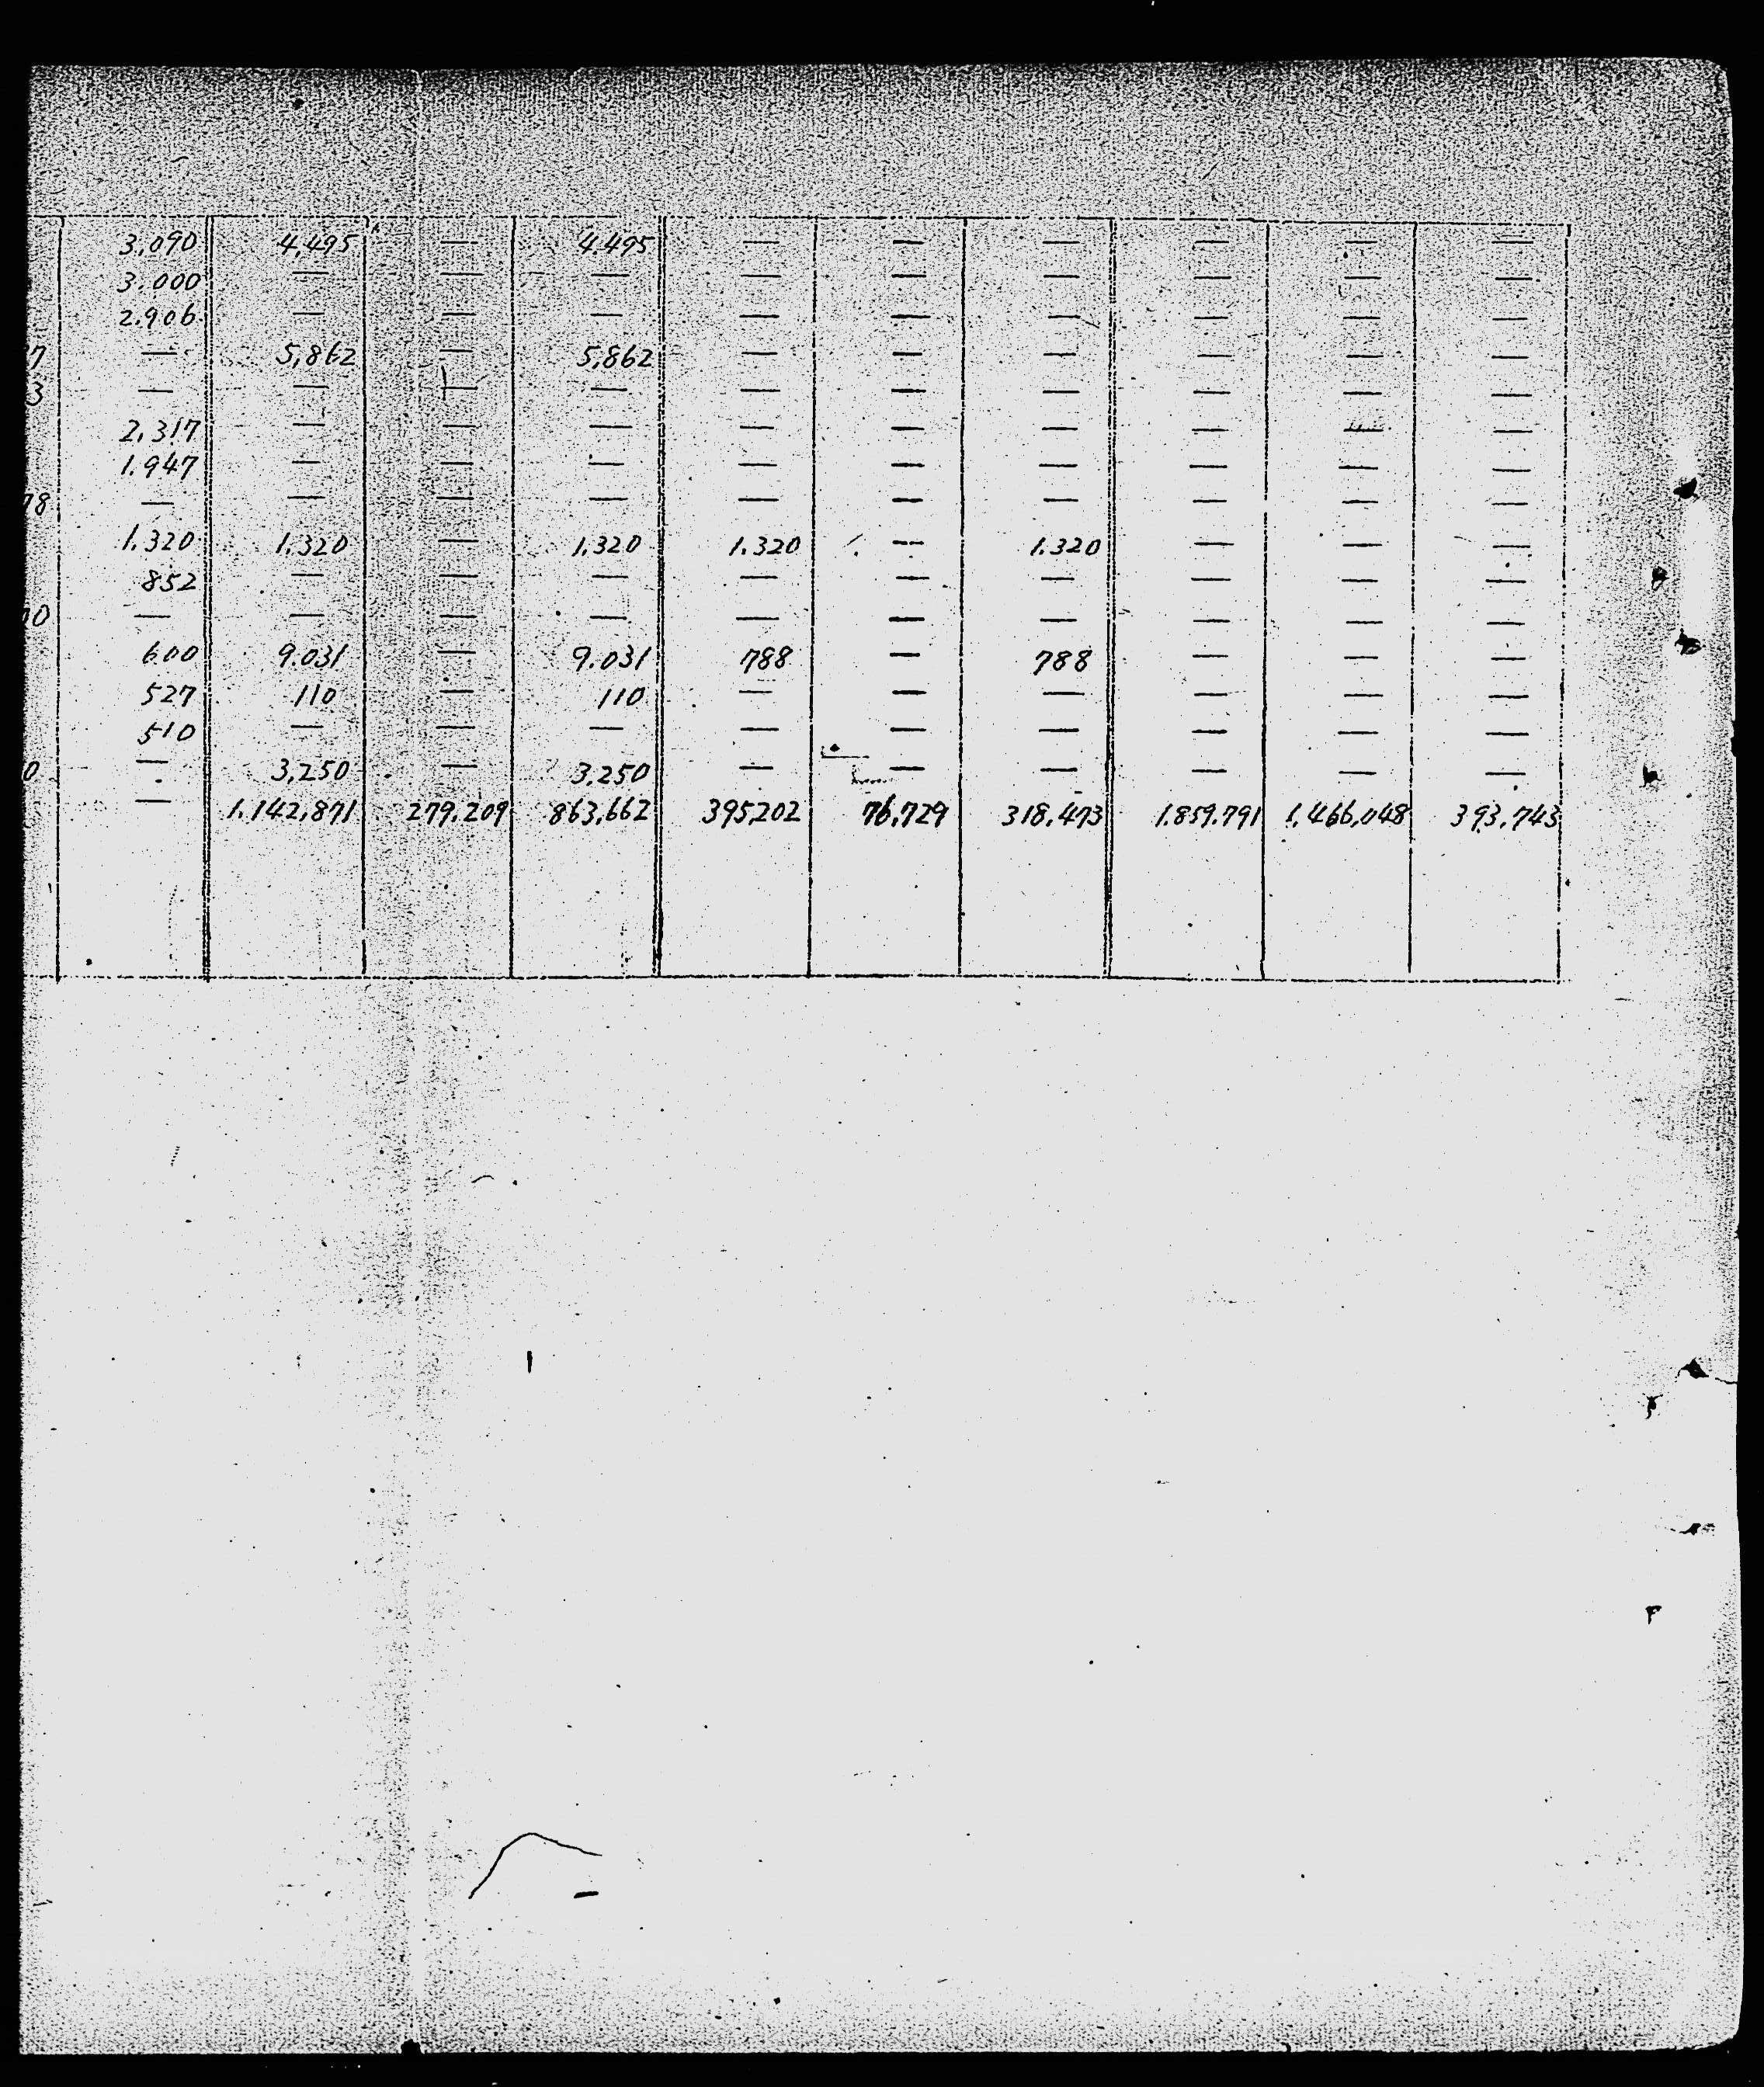 3,090 4,495 — 4.495 — — — — — —
3.000 — — — — — — — — —
2.906 — — — — — — — — —
7 — 5,862 — 5,862 — — — — — —
3 — — — — — — — — — —
2,317 — — — — — — — — —
1.947 — — — — — — — — —
78 — — — — — — — — — —
1.320 1.320 — 1.320 1.320 — 1.320 — — —
852 — — — — — — — — —
00 — — — — — — — — — —
600 9.031 — 9.031 788 — 788 — — —
527 110 — 110 — — — — — —
510 — — — — — — — — —
0 — 3,250 — 3.250 — — — — — —
— 1.142,871 279.209 863,662 395,202 76,729 318,473 1.859.791 1,466,048 393.743